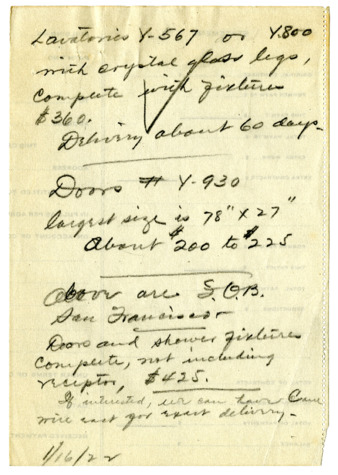 Lavatories Y-567 or Y.800
with crystal glass legs,
complete with fixtures
$360.
Delivery about 60 days-
Doors # Y-930
largest size is 78" X 27"
About $200 to $225
Above are F.O.B.
San Francisco
Doors and shower fixtures
complete, not including
receptor, $425.
If interested, we can have Crane
wire east for exact delivery-
1/16/22